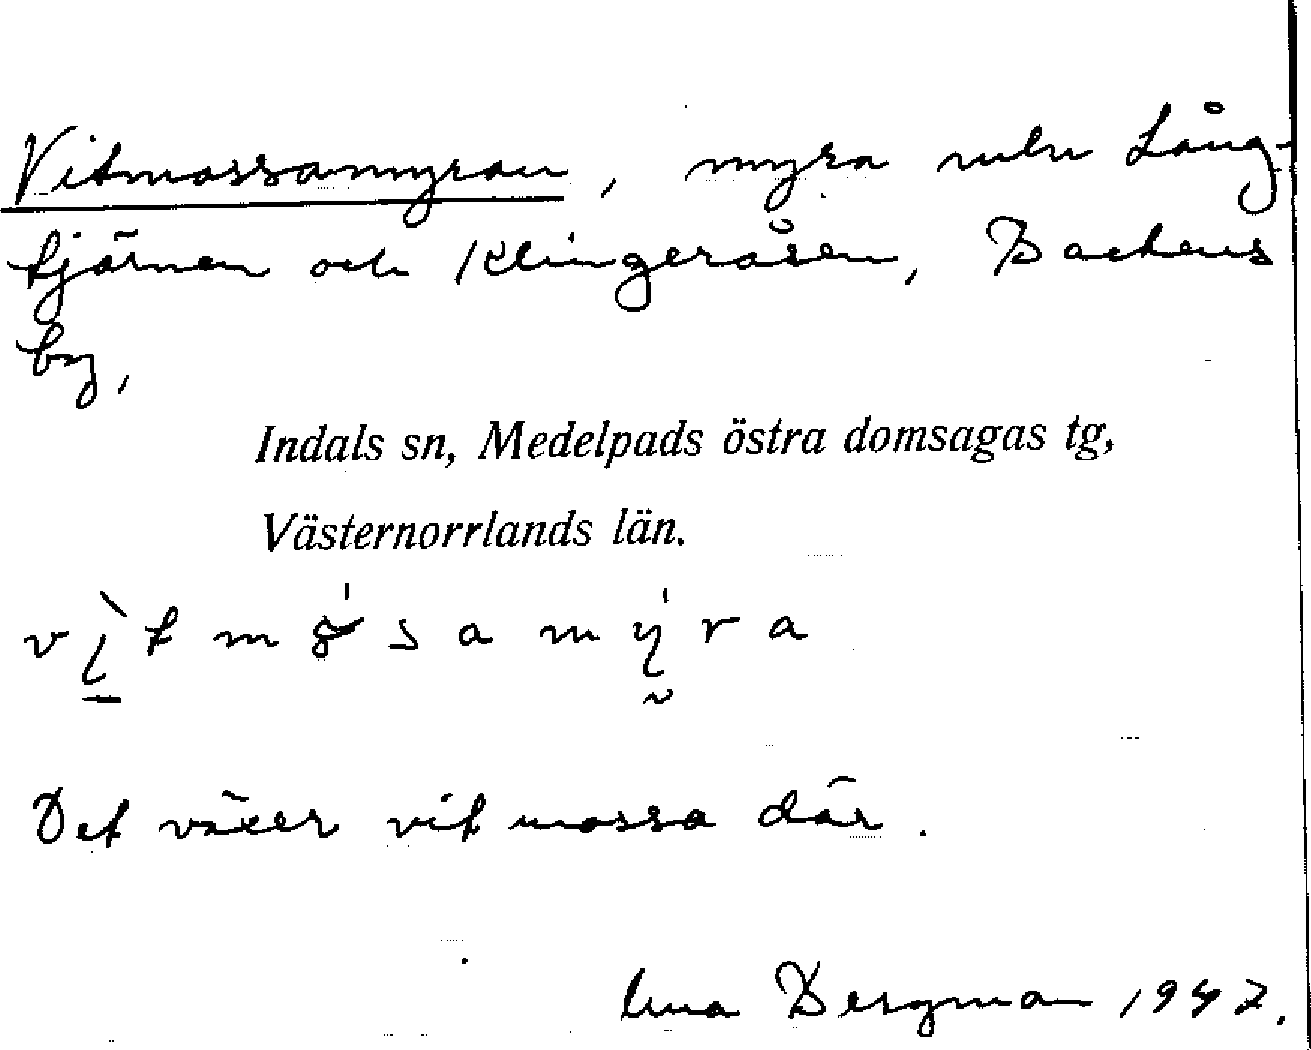 Vitmossamyran, myra mln Lång-
tjärnen och Klingeråsen, Backens
by,
Indals sn, Medelpads östra domsagas tg,
Västernorrlands län.
Det växer vit mossa där.
Bergman 1942.